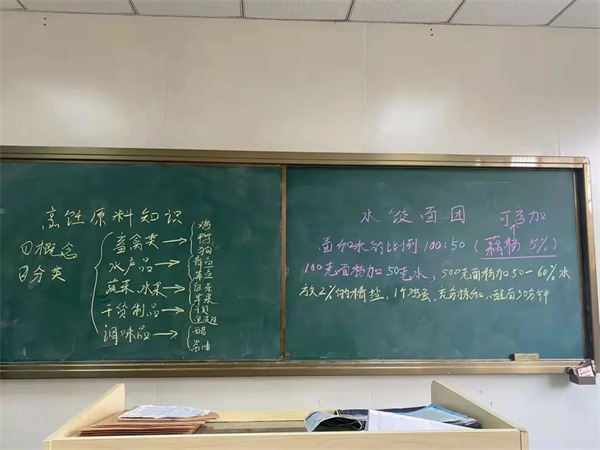 烹饪原料知识
①概念
②分类
畜禽类
水产品
蔬菜、水果
干货制品
调味品
鸡
鸭
白菜
苹果
醋
酱油
水饺面团
可另加
面和水的比例100:50(藕粉5%)
100克面粉加50克水,500克面粉加50-60%水
放2%的精盐,1个鸡蛋,充分揉和,醒面30分钟